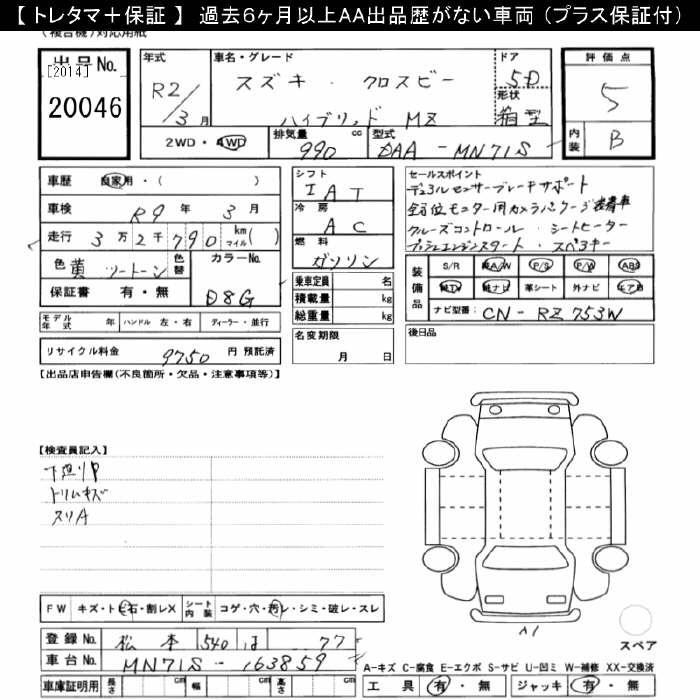 【 トレタマ＋保証 】 過去６ヶ月以上AA出品歴がない車両（プラス保証付）
(複合機)対応用紙
出品No.
[2014]
20046
年式
R2/3月
車名・グレード
スズキ . クロスビー
ハイブリッド MZ
ドア
5D
形状
箱型
2WD・4WD
排気量
990 cc
型式
DAA-MN71S
評価点
5
内装
B
車歴 自家用・( )
車検 R9年 3月
走行 3万2千790 km マイル( )
色 黄 ツートーン
色替
カラーNo.
D8G
保証書 有・無
モデル年式 年 ハンドル 左・右 ディーラー・並行
リサイクル料金 9750 円 預託済
シフト
IAT
冷房
AC
燃料
ガソリン
乗車定員 名
積載量 kg
総重量 kg
名変期限
月 日
セールスポイント
デュアルセンサーブレーキサポート
全方位モニター用カメラパッケージ装着車
クルーズコントロール・シートヒーター
プッシュエンジンスタート・スペアキー
装備品
S/R 純A/W P/S P/W ABS
純TV 純ナビ 革シート 外ナビ エアB
ナビ型番: CN-RZ753W
後日品
【出品店申告欄(不良箇所・欠品・注意事項等)】
【検査員記入】
下廻りP
トリムキズ
スリA
FW キズ・トビ石・割レX シート内装 コゲ・穴・汚レ・シミ・破レ・スレ
登録No. 松本 540 ほ 77
車台No. MN71S-163859
車庫証明用 長さ cm 幅 cm 高さ cm
A1
スペア
A-キズ C-腐食 E-エクボ S-サビ U-凹ミ W-補修 XX-交換済
工具 有・無 ジャッキ 有・無